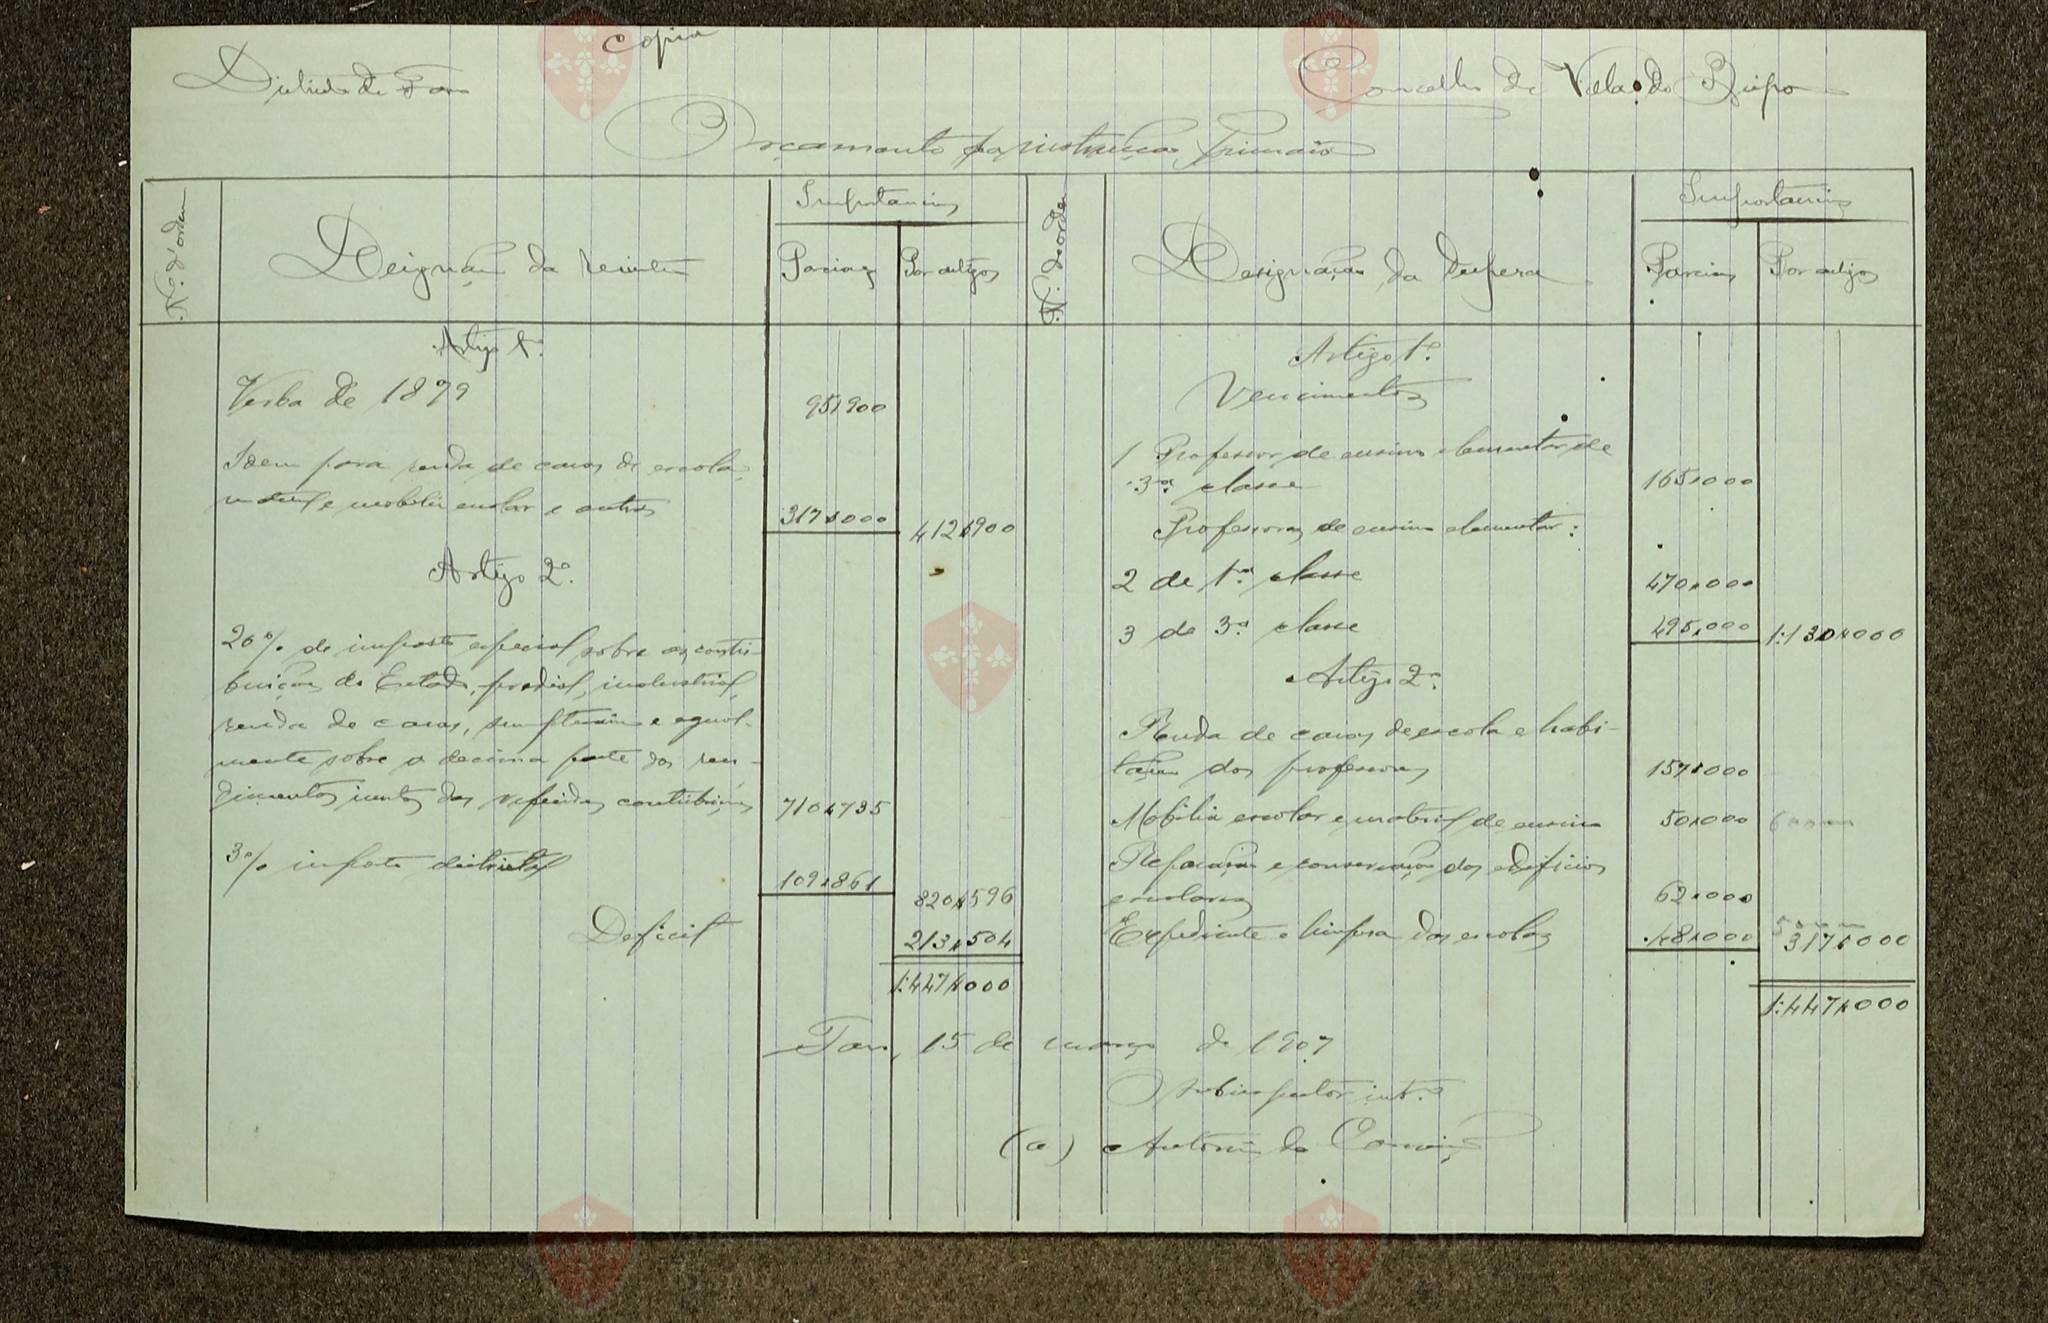 Copia
Districto de Faro
Concelho de Villa do Bispo
Orçamento da instrucção primaria
Nº d'ordem
Designação da receita
Importancias
Parciaes
Por artigos
Artigo 1º.
Verba de 1879
95$900
Idem para renda de casas de escola,
e mobilia escolar e outros
317$000
412$900
Artigo 2º.
20% de imposto especial sobre as contri-
buições do Estado, predial, industrial,
renda de casas, sumptuaria e egual-
mente sobre a decima parte dos ren-
dimentos das referidas contribuições
710$735
3% imposto districtal
109$861
820$596
Deficit
213$504
1:447$000
Nº. de ordem
Designação da despesa
Importancias
Parciaes
Por artigos
Artigo 1º.
Vencimentos
1 Professor de ensino elementar de
3ª. classe
165$000
Professoras de ensino elementar:
2 de 1ª. classe
470$000
3 de 3ª. classe
495$000
1:130$000
Artigo 2º.
Renda de casas de escola e habi-
tação dos professores
157$000
Mobilia escolar e material de ensino
50$000
Reparação e conservação dos edificios
escolares
62$000
Expediente e limpesa das escolas
48$000
317$000
1:447$000
Faro, 15 de março de 1907
O subinspector intº.
(a) Antonio da